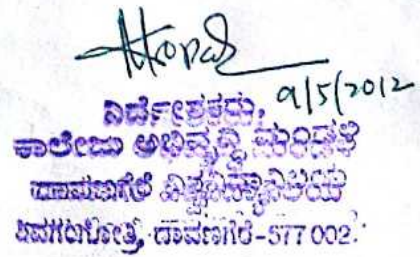 9/5/2012
ನಿರ್ದೇಶಕರು,
ಕಾಲೇಜು ಅಭಿವೃದ್ಧಿ ಮಂಡಳಿ
ದಾವಣಗೆರೆ ವಿಶ್ವವಿದ್ಯಾನಿಲಯ
ಶಿವಗಂಗೋತ್ರಿ, ದಾವಣಗೆರೆ-577 002.